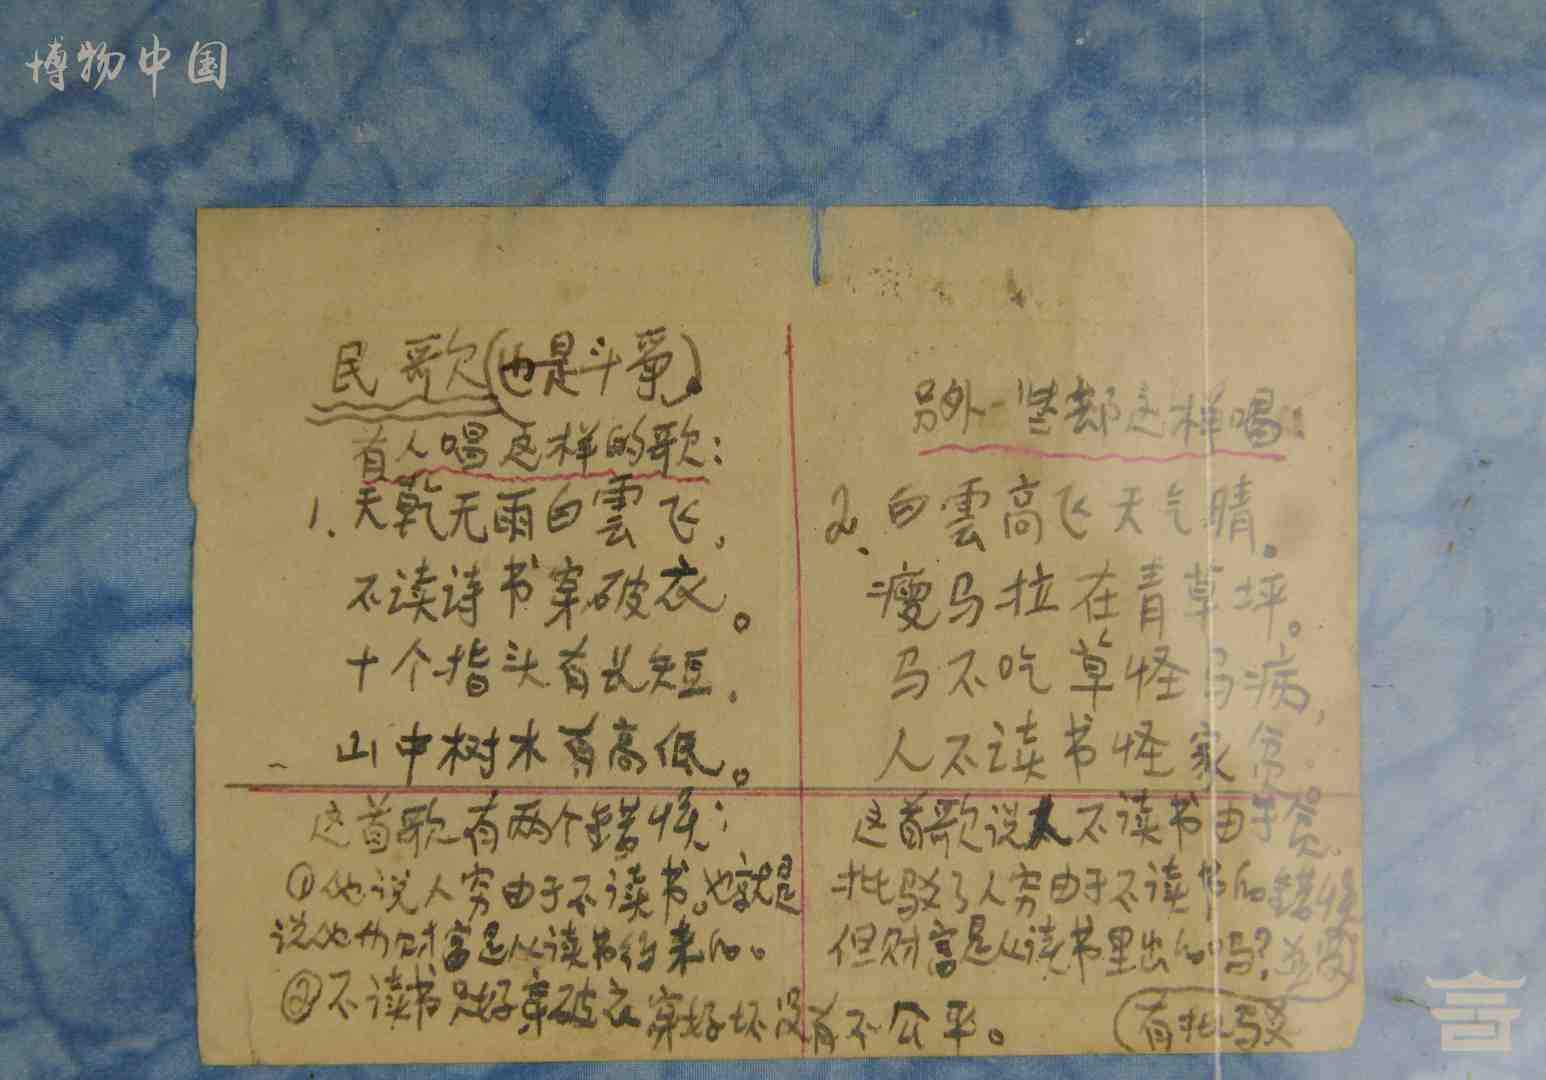 博物中国
民歌(也是斗争)。
有人唱这样的歌:
1.天乾无雨白雲飞,
不读诗书穿破衣。
十个指头有长短,
山中树木有高低。
这首歌有两个错误:
①他说人穷由于不读书。也就是
说他的财富是从读书得来的。
②不读书只好穿破衣穿好坏没有不公平。
另外一些却这样唱:
2、白雲高飞天气晴。
瘦马拉在青草坪。
马不吃草怪马病,
人不读书怪家贫。
这首歌说人不读书由于贫。
批驳了人穷由于不读书的错误
但财富是从读书里出的吗?
(有批驳